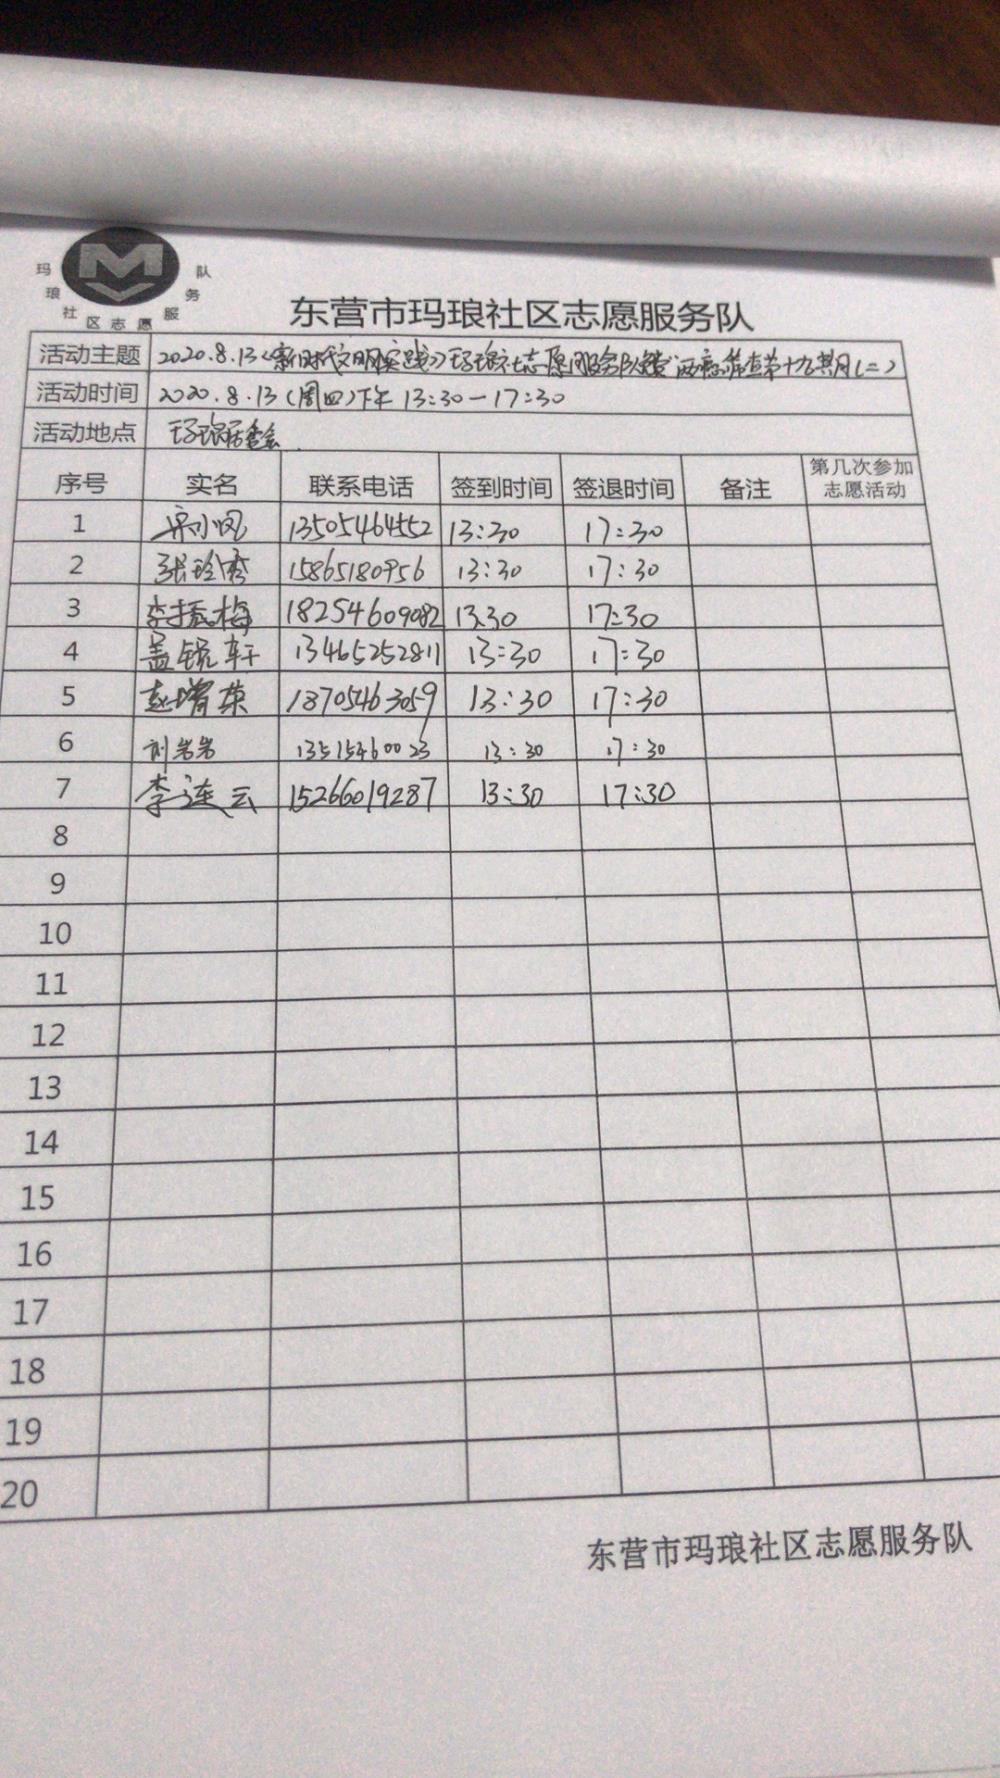 玛琅社区志愿服务队
东营市玛琅社区志愿服务队
活动主题 2020.8.13《新时代文明实践》玛琅社志愿服务队 筛查第十九期月(二)
活动时间 2020.8.13(周四)下午 13:30-17:30
活动地点 玛琅居委会
序号 实名 联系电话 签到时间 签退时间 备注 第几次参加志愿活动
1 小凤 13505464552 13:30 17:30
2 张玲秀 15865180956 13:30 17:30
3 李振梅 18254609082 13:30 17:30
4 盖锐轩 13465252811 13:30 17:30
5 赵增荣 18705463059 13:30 17:30
6 刘岩岩 13515460023 13:30 17:30
7 李连云 15266019287 13:30 17:30
8
9
10
11
12
13
14
15
16
17
18
19
20
东营市玛琅社区志愿服务队